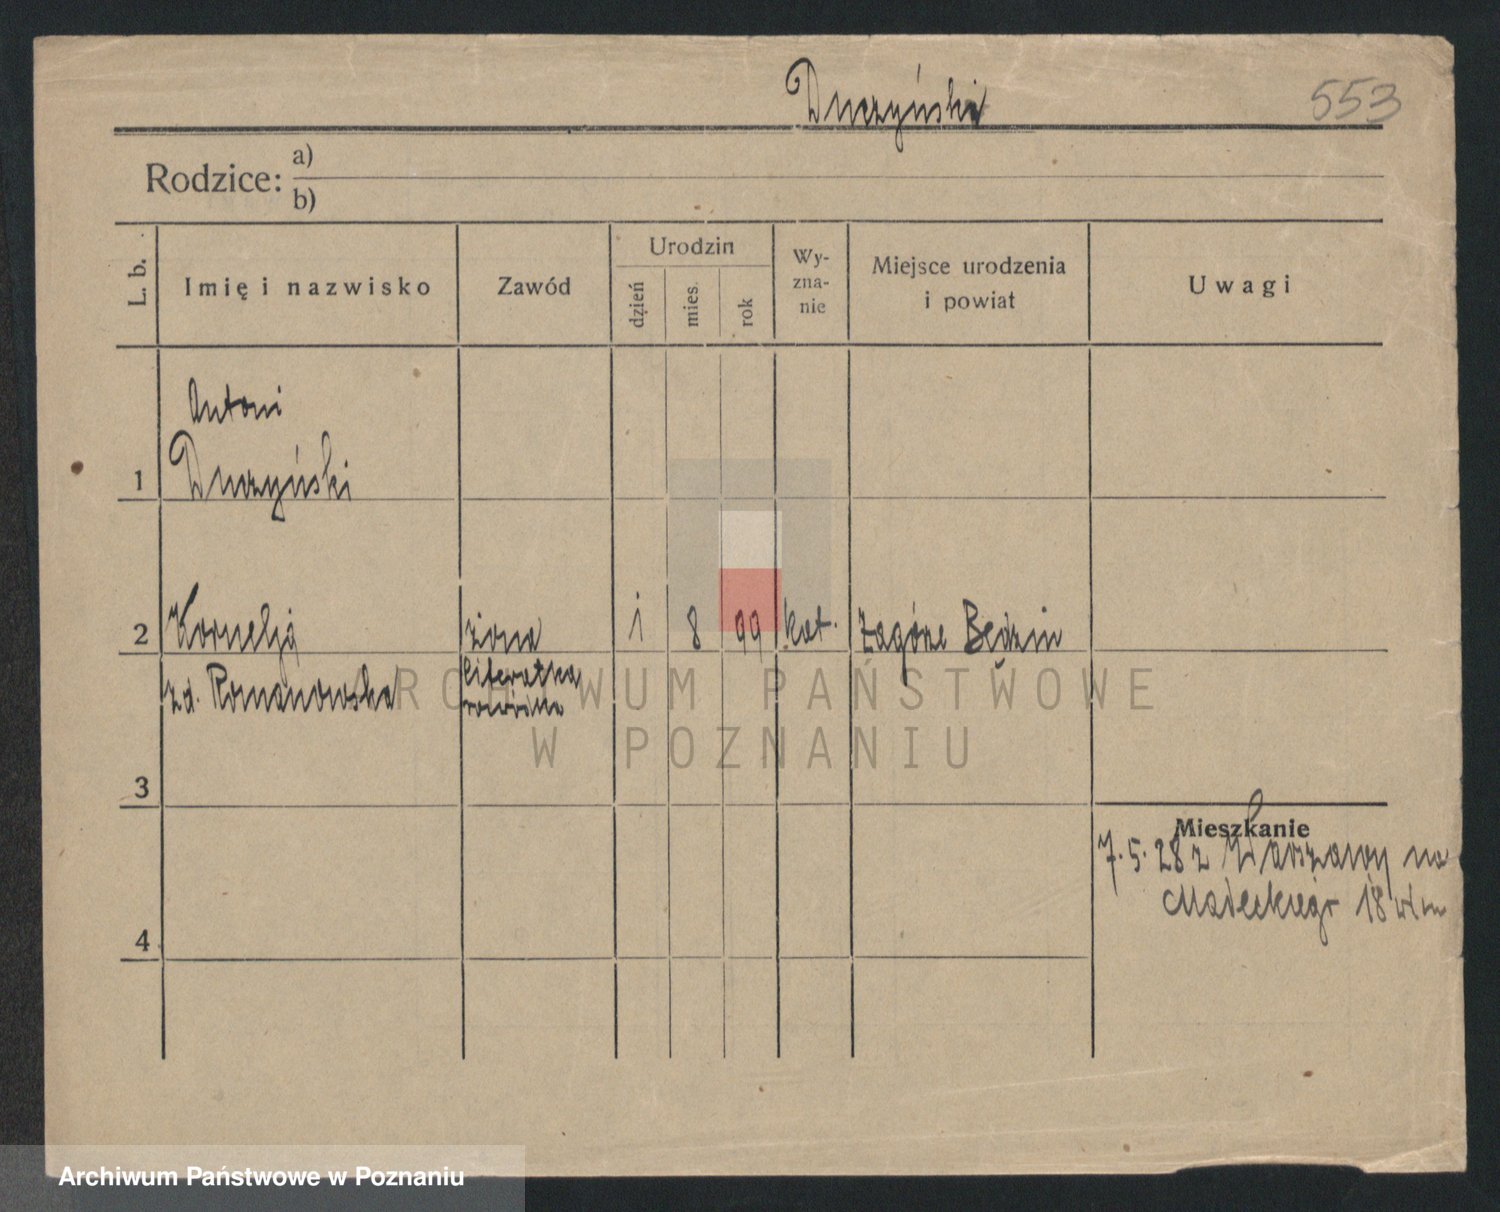 Duczyński
553
Rodzice:
a)
b)
L. b.
Imię i nazwisko
Zawód
Urodzin
dzień
mies.
rok
Wy-
zna-
nie
Miejsce urodzenia
i powiat
Uwagi
1
Antoni
Duczyński
2
Kornelja
żona
1
8
99
kat.
Zagórze Będzin
zd. Romanowska
literatka
rozwódka
3
Mieszkanie
7.5.28 z Warszawy na
Madeckiego 18
4
ARCHIWUM PAŃSTWOWE
W POZNANIU
Archiwum Państwowe w Poznaniu